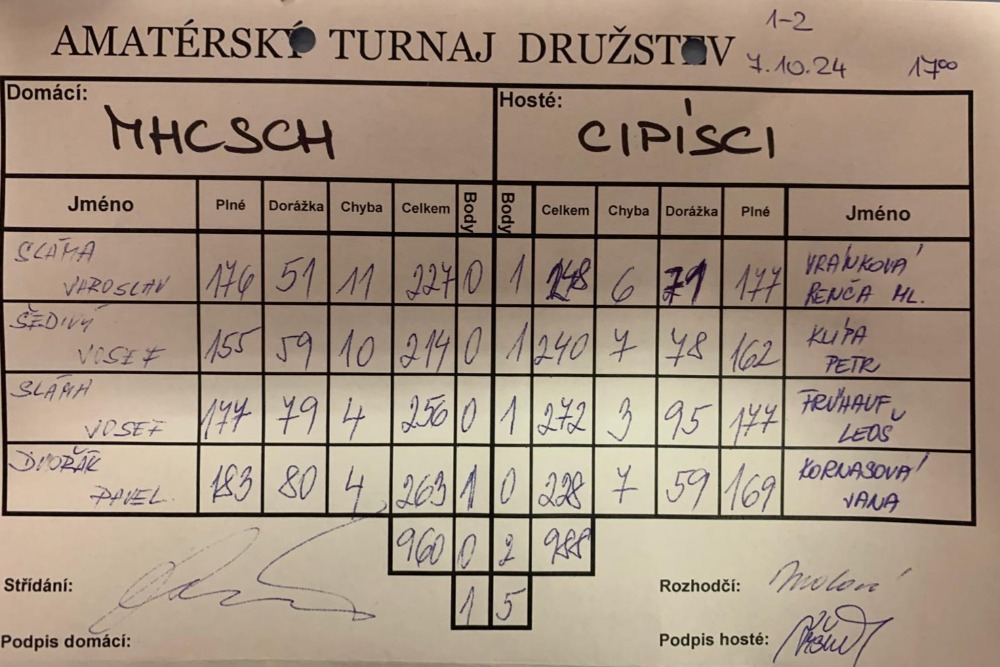 1-2
AMATÉRSKÝ TURNAJ DRUŽSTEV 7.10.24 17⁰⁰
Domácí: Hosté:
MHCSCH CIPÍSCI
Jméno Plné Dorážka Chyba Celkem Body Body Celkem Chyba Dorážka Plné Jméno
SLÁMA VRAŇKOVÁ
JAROSLAV 176 51 11 227 0 1 248 6 71 177 RENČA ML.
ŠEDIVÝ KLÍPA
JOSEF 155 59 10 214 0 1 240 7 78 162 PETR
SLÁMA FRÜHAUF
JOSEF 177 79 4 256 0 1 272 3 95 177 LEOŠ
DVOŘÁK KORNASOVÁ
PAVEL 183 80 4 263 1 0 228 7 59 169 JANA
960 0 2 988
Střídání: 1 5 Rozhodčí:
Podpis domácí: Podpis hosté: